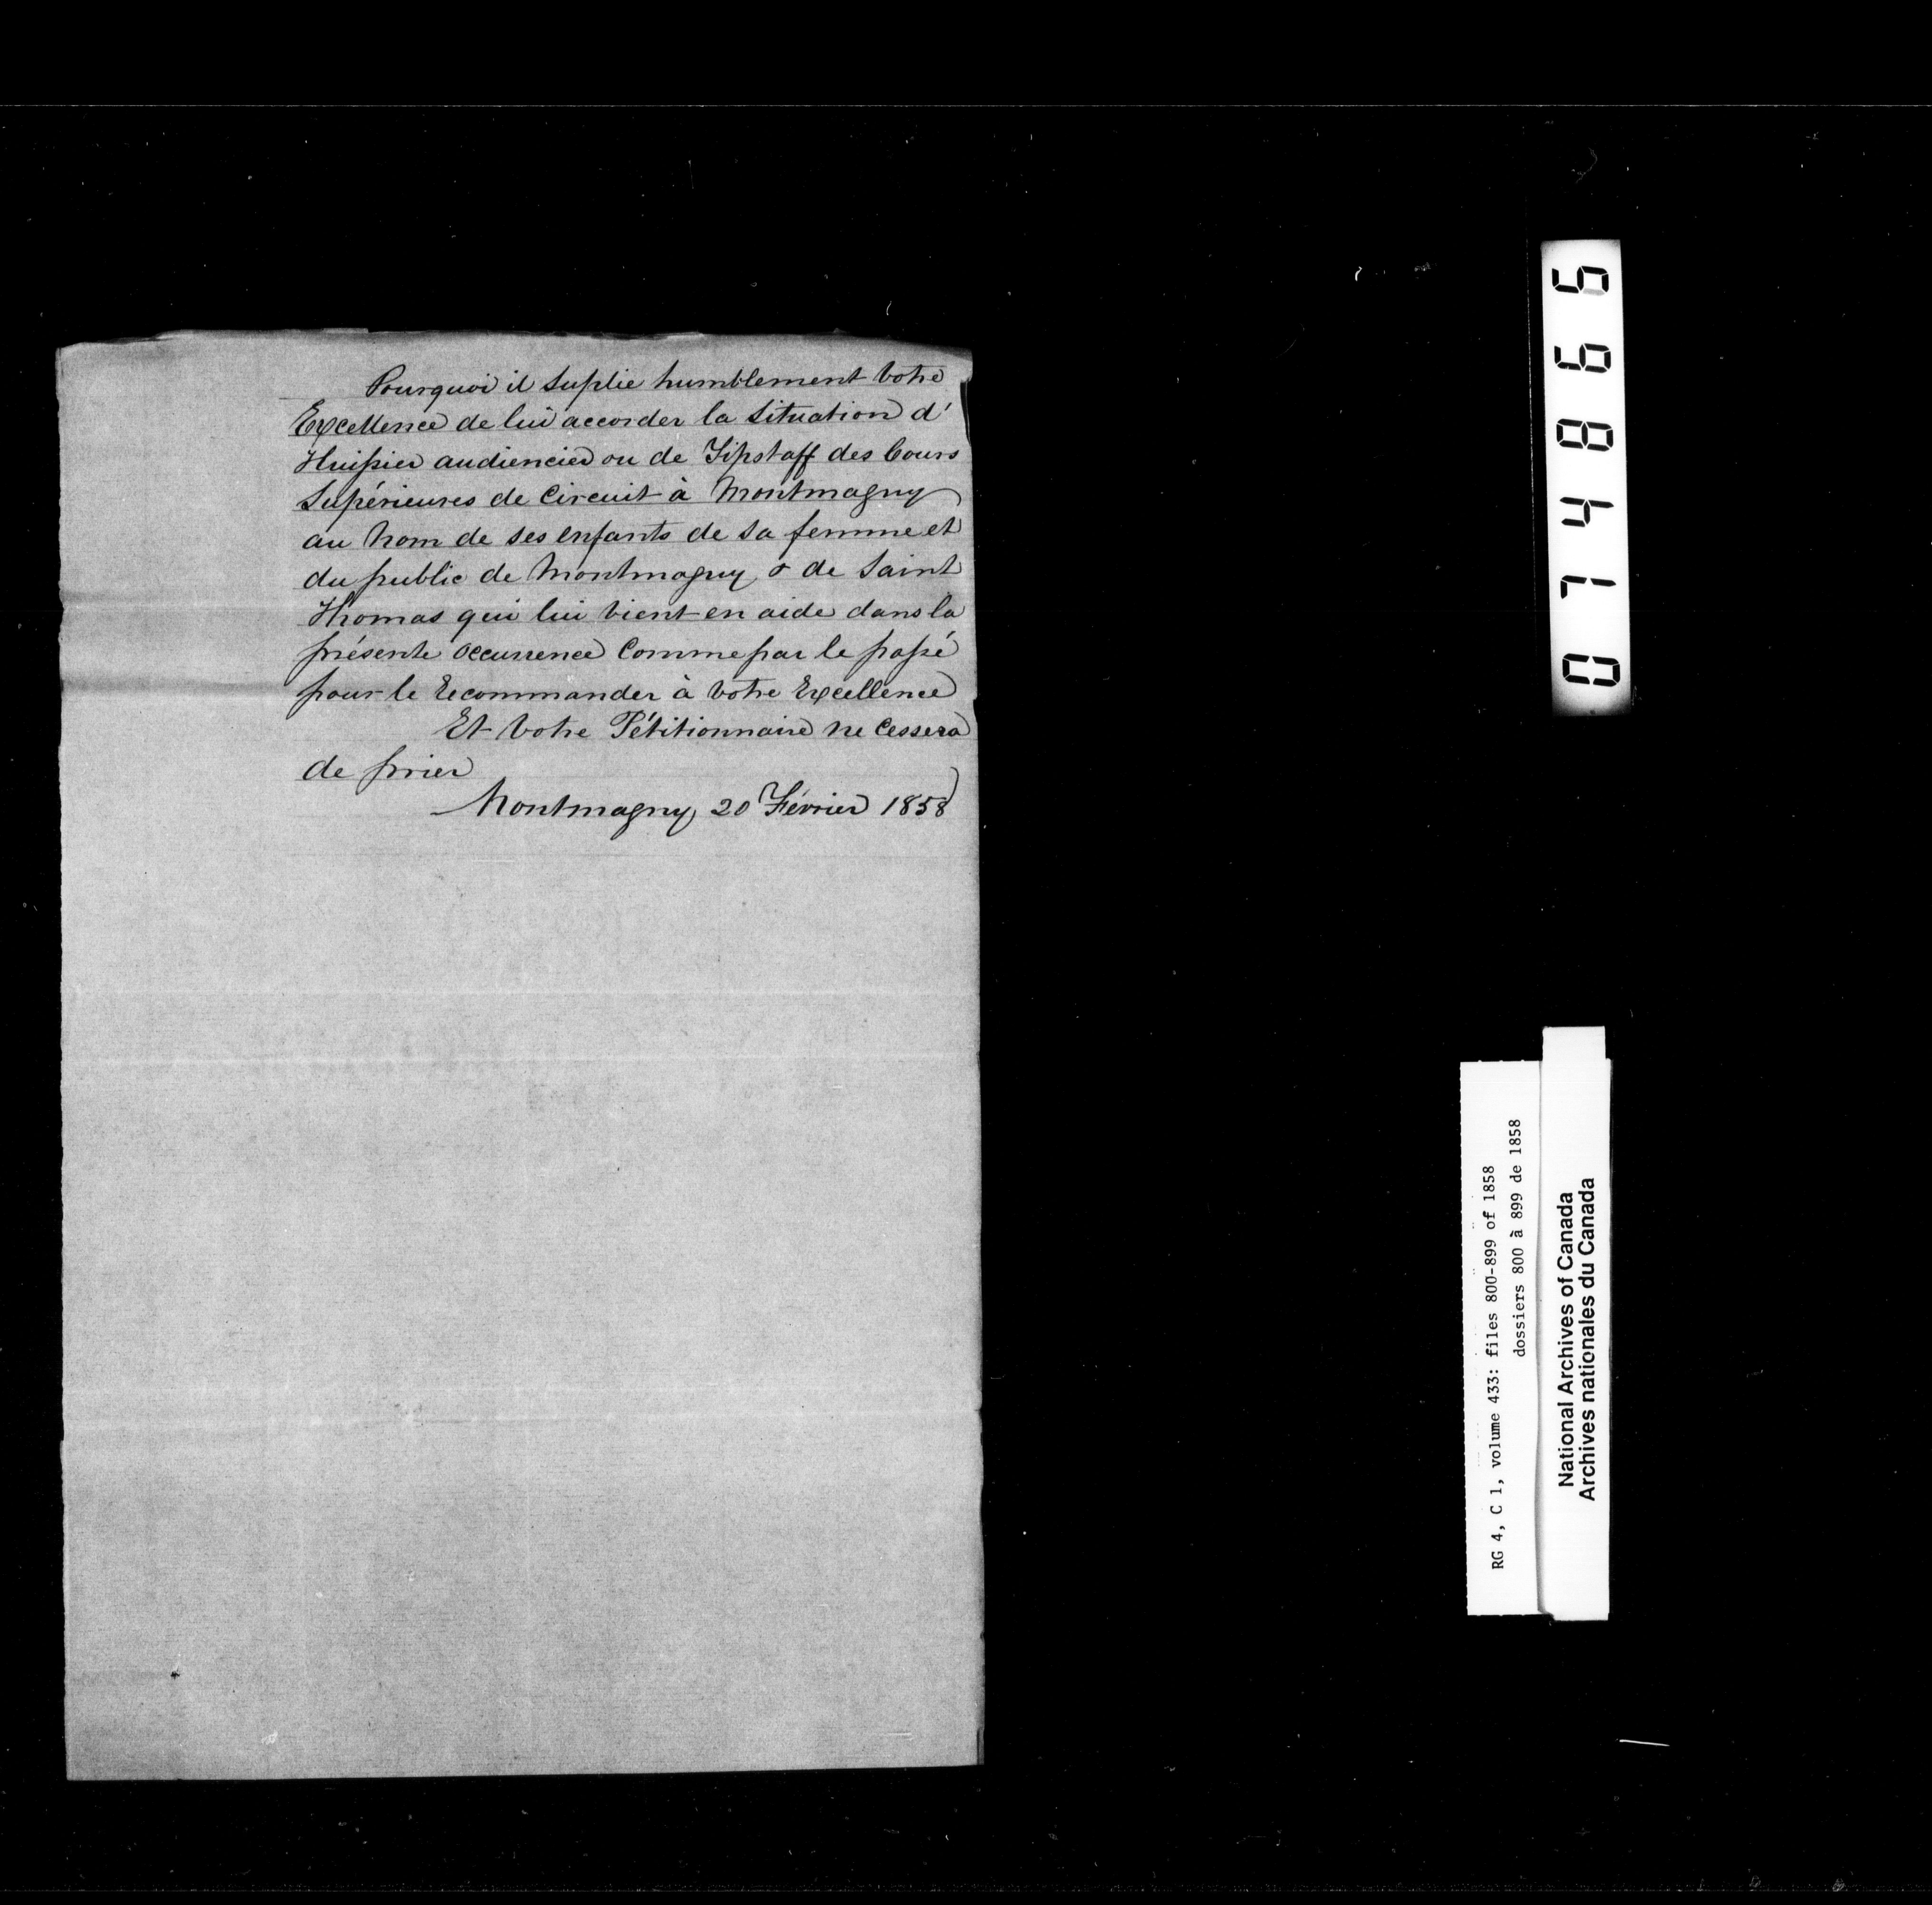 Pourquoi il suplie humblement Votre
Excellence de lui accorder la situation d'
Huissier audiencier ou de Tipstaff des Cours
Supérieures de Circuit à Montmagny
au nom de ses enfants de sa femme et
du public de Montmagny & de Saint
Thomas qui lui vient en aide dans la
présente occurrence comme par le passé
pour le recommander à Votre Excellence
Et Votre Pétitionnaire ne cessera
de prier
Montmagny 20 Février 1858
074865
RG 4, C 1, volume 433: files 800-899 of 1858
dossiers 800 à 899 de 1858
National Archives of Canada
Archives nationales du Canada